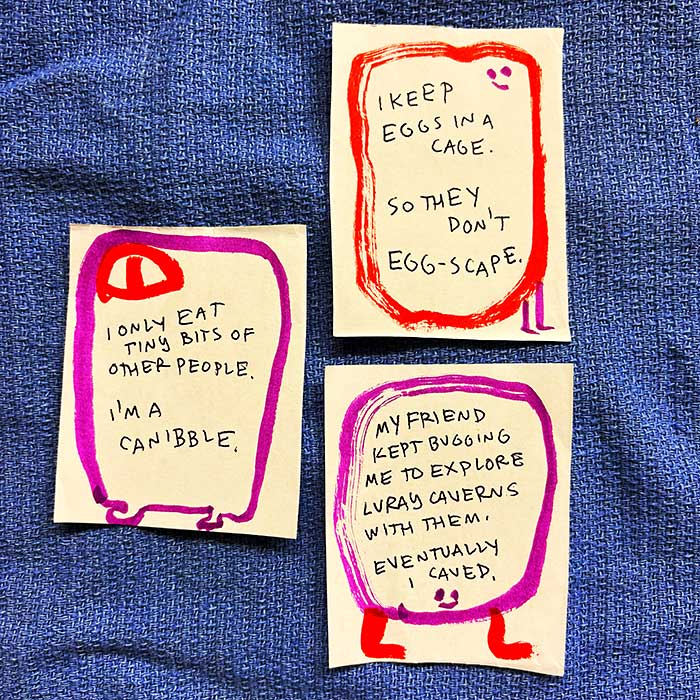 I KEEP
EGGS IN A
CAGE.
SO THEY
DON'T
EGG-SCAPE.
I ONLY EAT
TINY BITS OF
OTHER PEOPLE.
I'M A
CANIBBLE.
MY FRIEND
KEPT BUGGING
ME TO EXPLORE
LURAY CAVERNS
WITH THEM.
EVENTUALLY
I CAVED.